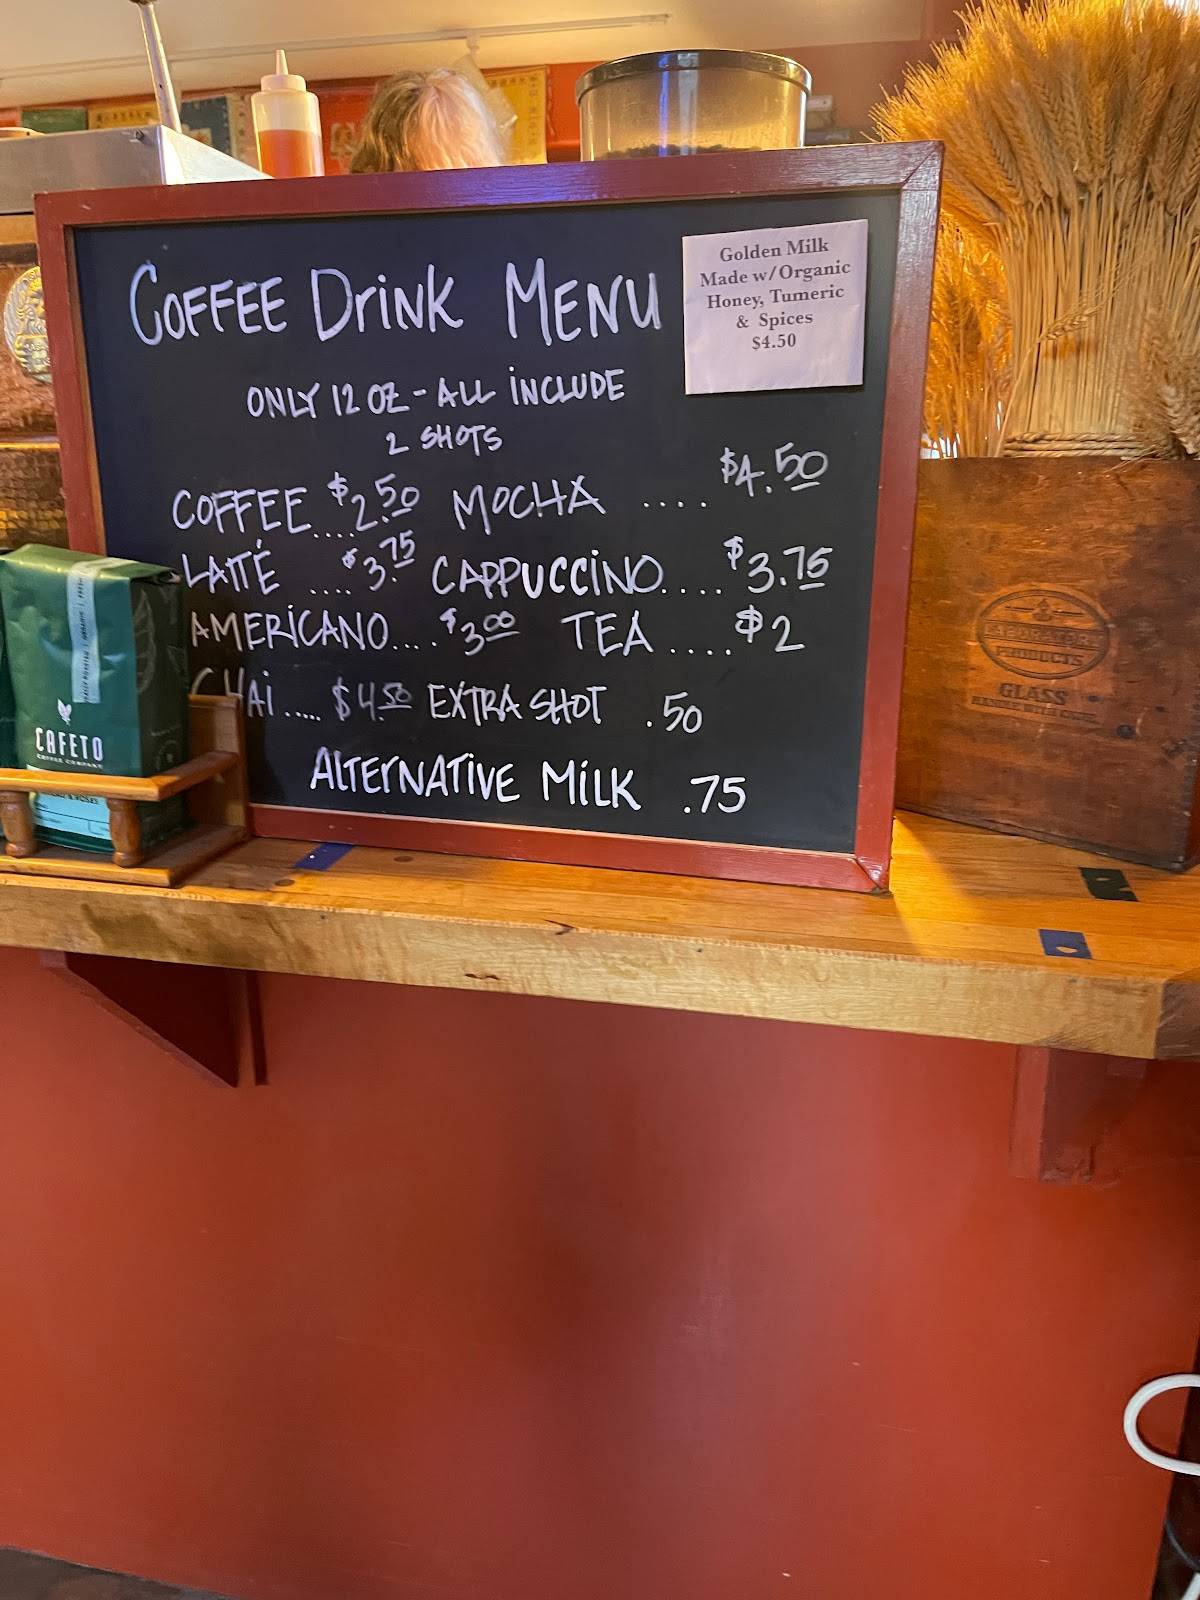 Golden Milk
Made w/Organic
Honey, Tumeric
& Spices
$4.50
COFFEE DriNK MENU
ONLY 12 OZ - ALL iNCLUDE
2 SHOTS
COFFEE.... $2.50 MOCHA .... $4.50
LATTÉ .... $3.75 CAPPUCCiNO.... $3.75
AMERiCANO.... $3.00 TEA .... $2
CHAi..... $4.50 EXTRA SHOT .50
AlTErNATiVE MiLK .75
CAFETO
COFFEE COMPANY
LABORATORY
PRODUCTS
GLASS
HANDLE WITH CARE